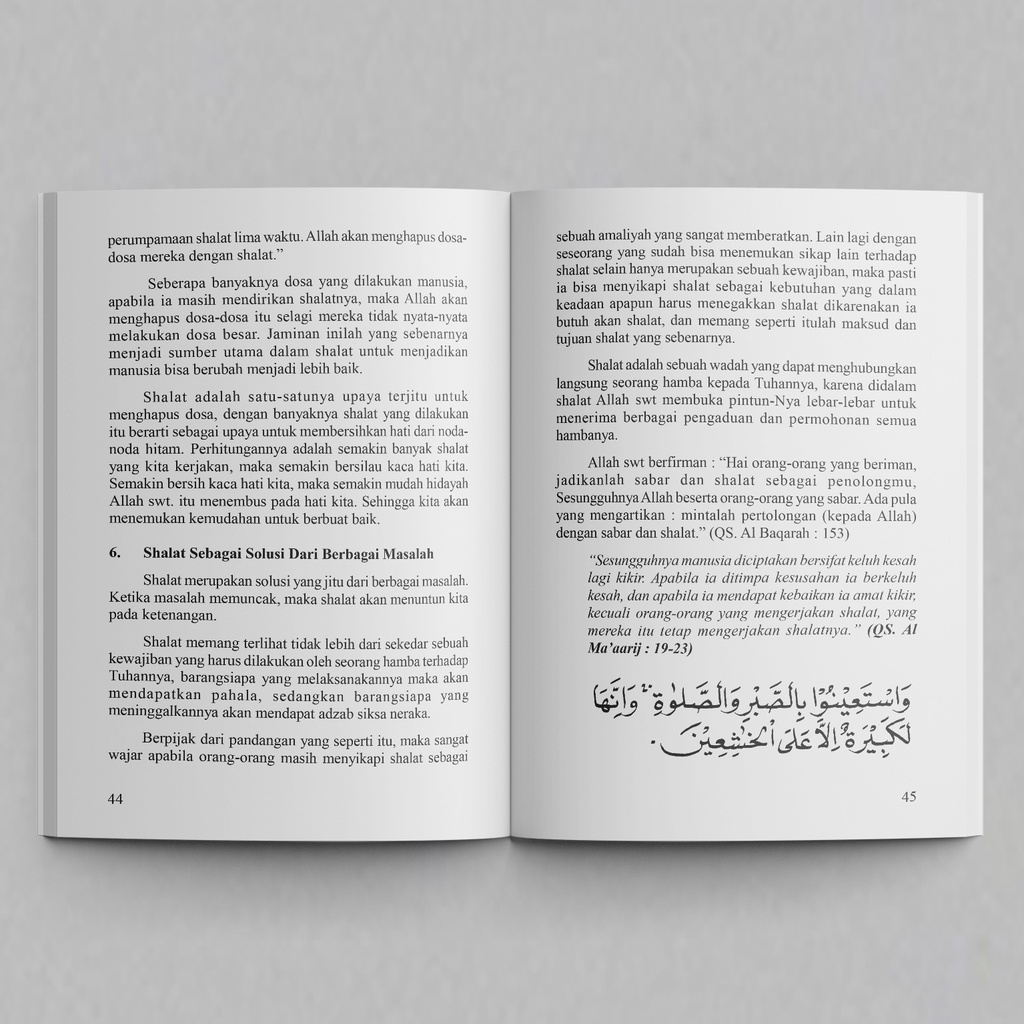 perumpamaan shalat lima waktu. Allah akan menghapus dosa-
dosa mereka dengan shalat.”
Seberapa banyaknya dosa yang dilakukan manusia,
apabila ia masih mendirikan shalatnya, maka Allah akan
menghapus dosa-dosa itu selagi mereka tidak nyata-nyata
melakukan dosa besar. Jaminan inilah yang sebenarnya
menjadi sumber utama dalam shalat untuk menjadikan
manusia bisa berubah menjadi lebih baik.
Shalat adalah satu-satunya upaya terjitu untuk
menghapus dosa, dengan banyaknya shalat yang dilakukan
itu berarti sebagai upaya untuk membersihkan hati dari noda-
noda hitam. Perhitungannya adalah semakin banyak shalat
yang kita kerjakan, maka semakin bersilau kaca hati kita.
Semakin bersih kaca hati kita, maka semakin mudah hidayah
Allah swt. itu menembus pada hati kita. Sehingga kita akan
menemukan kemudahan untuk berbuat baik.
6. Shalat Sebagai Solusi Dari Berbagai Masalah
Shalat merupakan solusi yang jitu dari berbagai masalah.
Ketika masalah memuncak, maka shalat akan menuntun kita
pada ketenangan.
Shalat memang terlihat tidak lebih dari sekedar sebuah
kewajiban yang harus dilakukan oleh seorang hamba terhadap
Tuhannya, barangsiapa yang melaksanakannya maka akan
mendapatkan pahala, sedangkan barangsiapa yang
meninggalkannya akan mendapat adzab siksa neraka.
Berpijak dari pandangan yang seperti itu, maka sangat
wajar apabila orang-orang masih menyikapi shalat sebagai
44
sebuah amaliyah yang sangat memberatkan. Lain lagi dengan
seseorang yang sudah bisa menemukan sikap lain terhadap
shalat selain hanya merupakan sebuah kewajiban, maka pasti
ia bisa menyikapi shalat sebagai kebutuhan yang dalam
keadaan apapun harus menegakkan shalat dikarenakan ia
butuh akan shalat, dan memang seperti itulah maksud dan
tujuan shalat yang sebenarnya.
Shalat adalah sebuah wadah yang dapat menghubungkan
langsung seorang hamba kepada Tuhannya, karena didalam
shalat Allah swt membuka pintun-Nya lebar-lebar untuk
menerima berbagai pengaduan dan permohonan semua
hambanya.
Allah swt berfirman : “Hai orang-orang yang beriman,
jadikanlah sabar dan shalat sebagai penolongmu,
Sesungguhnya Allah beserta orang-orang yang sabar. Ada pula
yang mengartikan : mintalah pertolongan (kepada Allah)
dengan sabar dan shalat.” (QS. Al Baqarah : 153)
“Sesungguhnya manusia diciptakan bersifat keluh kesah
lagi kikir. Apabila ia ditimpa kesusahan ia berkeluh
kesah, dan apabila ia mendapat kebaikan ia amat kikir,
kecuali orang-orang yang mengerjakan shalat, yang
mereka itu tetap mengerjakan shalatnya.” (QS. Al
Ma’aarij : 19-23)
وَاسْتَعِيْنُوْا بِالصَّبْرِ وَالصَّلٰوةِ ۗ وَاِنَّهَا
لَكَبِيْرَةٌ اِلَّا عَلَى الْخٰشِعِيْنَ .
45